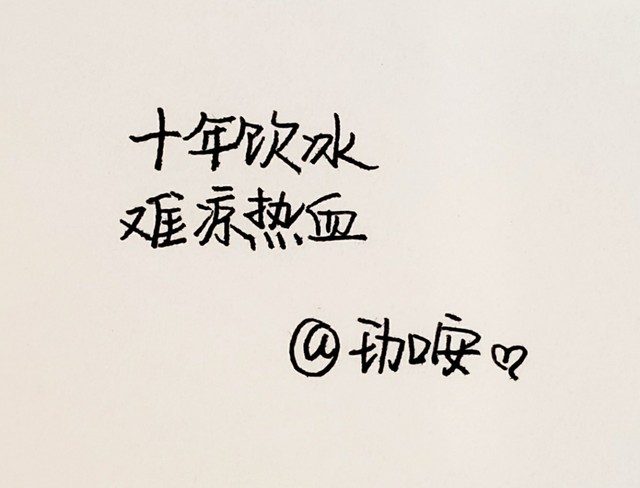 十年饮冰
难凉热血
@珈安♡